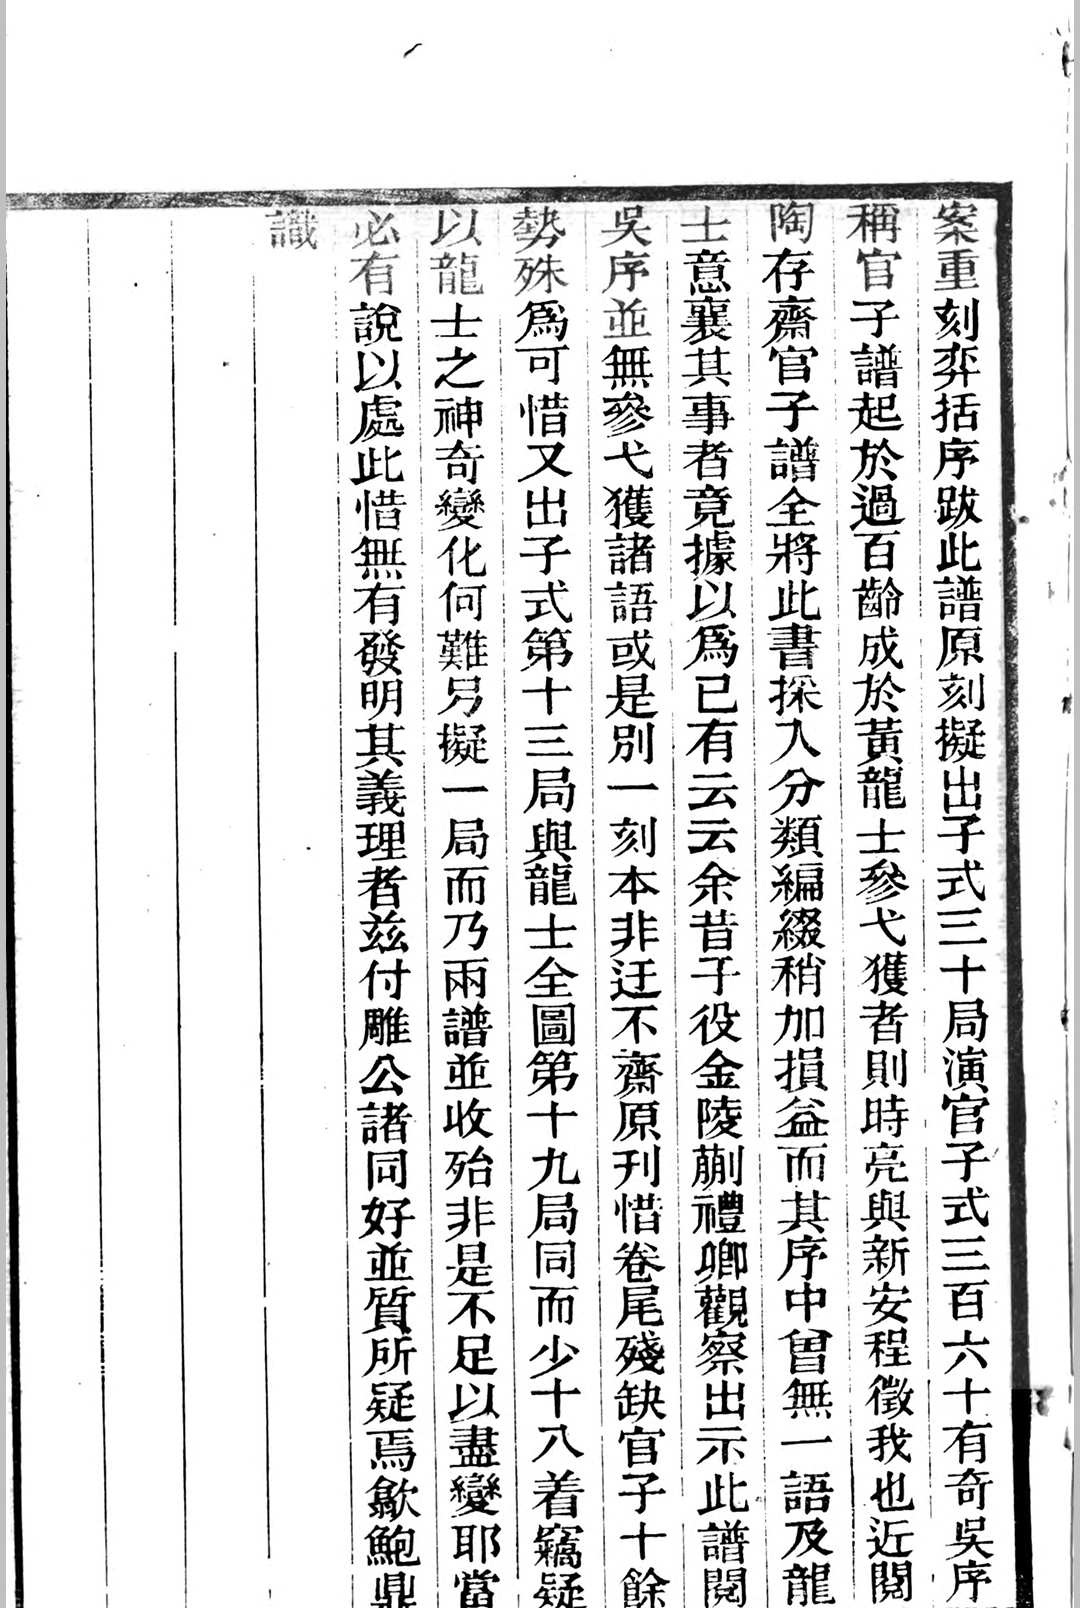 案重刻弈括序跋此譜原刻擬出子式三十局演官子式三百六十有奇吳序
稱官子譜起於過百齡成於黃龍士參弋獲者則時亮與新安程徵我也近閱
陶存齋官子譜全將此書採入分類編綴稍加損益而其序中曾無一語及龍
士意襄其事者竟據以爲已有云云余昔于役金陵蒯禮卿觀察出示此譜閱
吳序並無參弋獲諸語或是別一刻本非迋不齋原刊惜卷尾殘缺官子十餘
勢殊爲可惜又出子式第十三局與龍士全圖第十九局同而少十八着竊疑
以龍士之神奇變化何難另擬一局而乃兩譜並收殆非是不足以盡變耶當
必有說以處此惜無有發明其義理者兹付雕公諸同好並質所疑焉歙鮑鼎
識